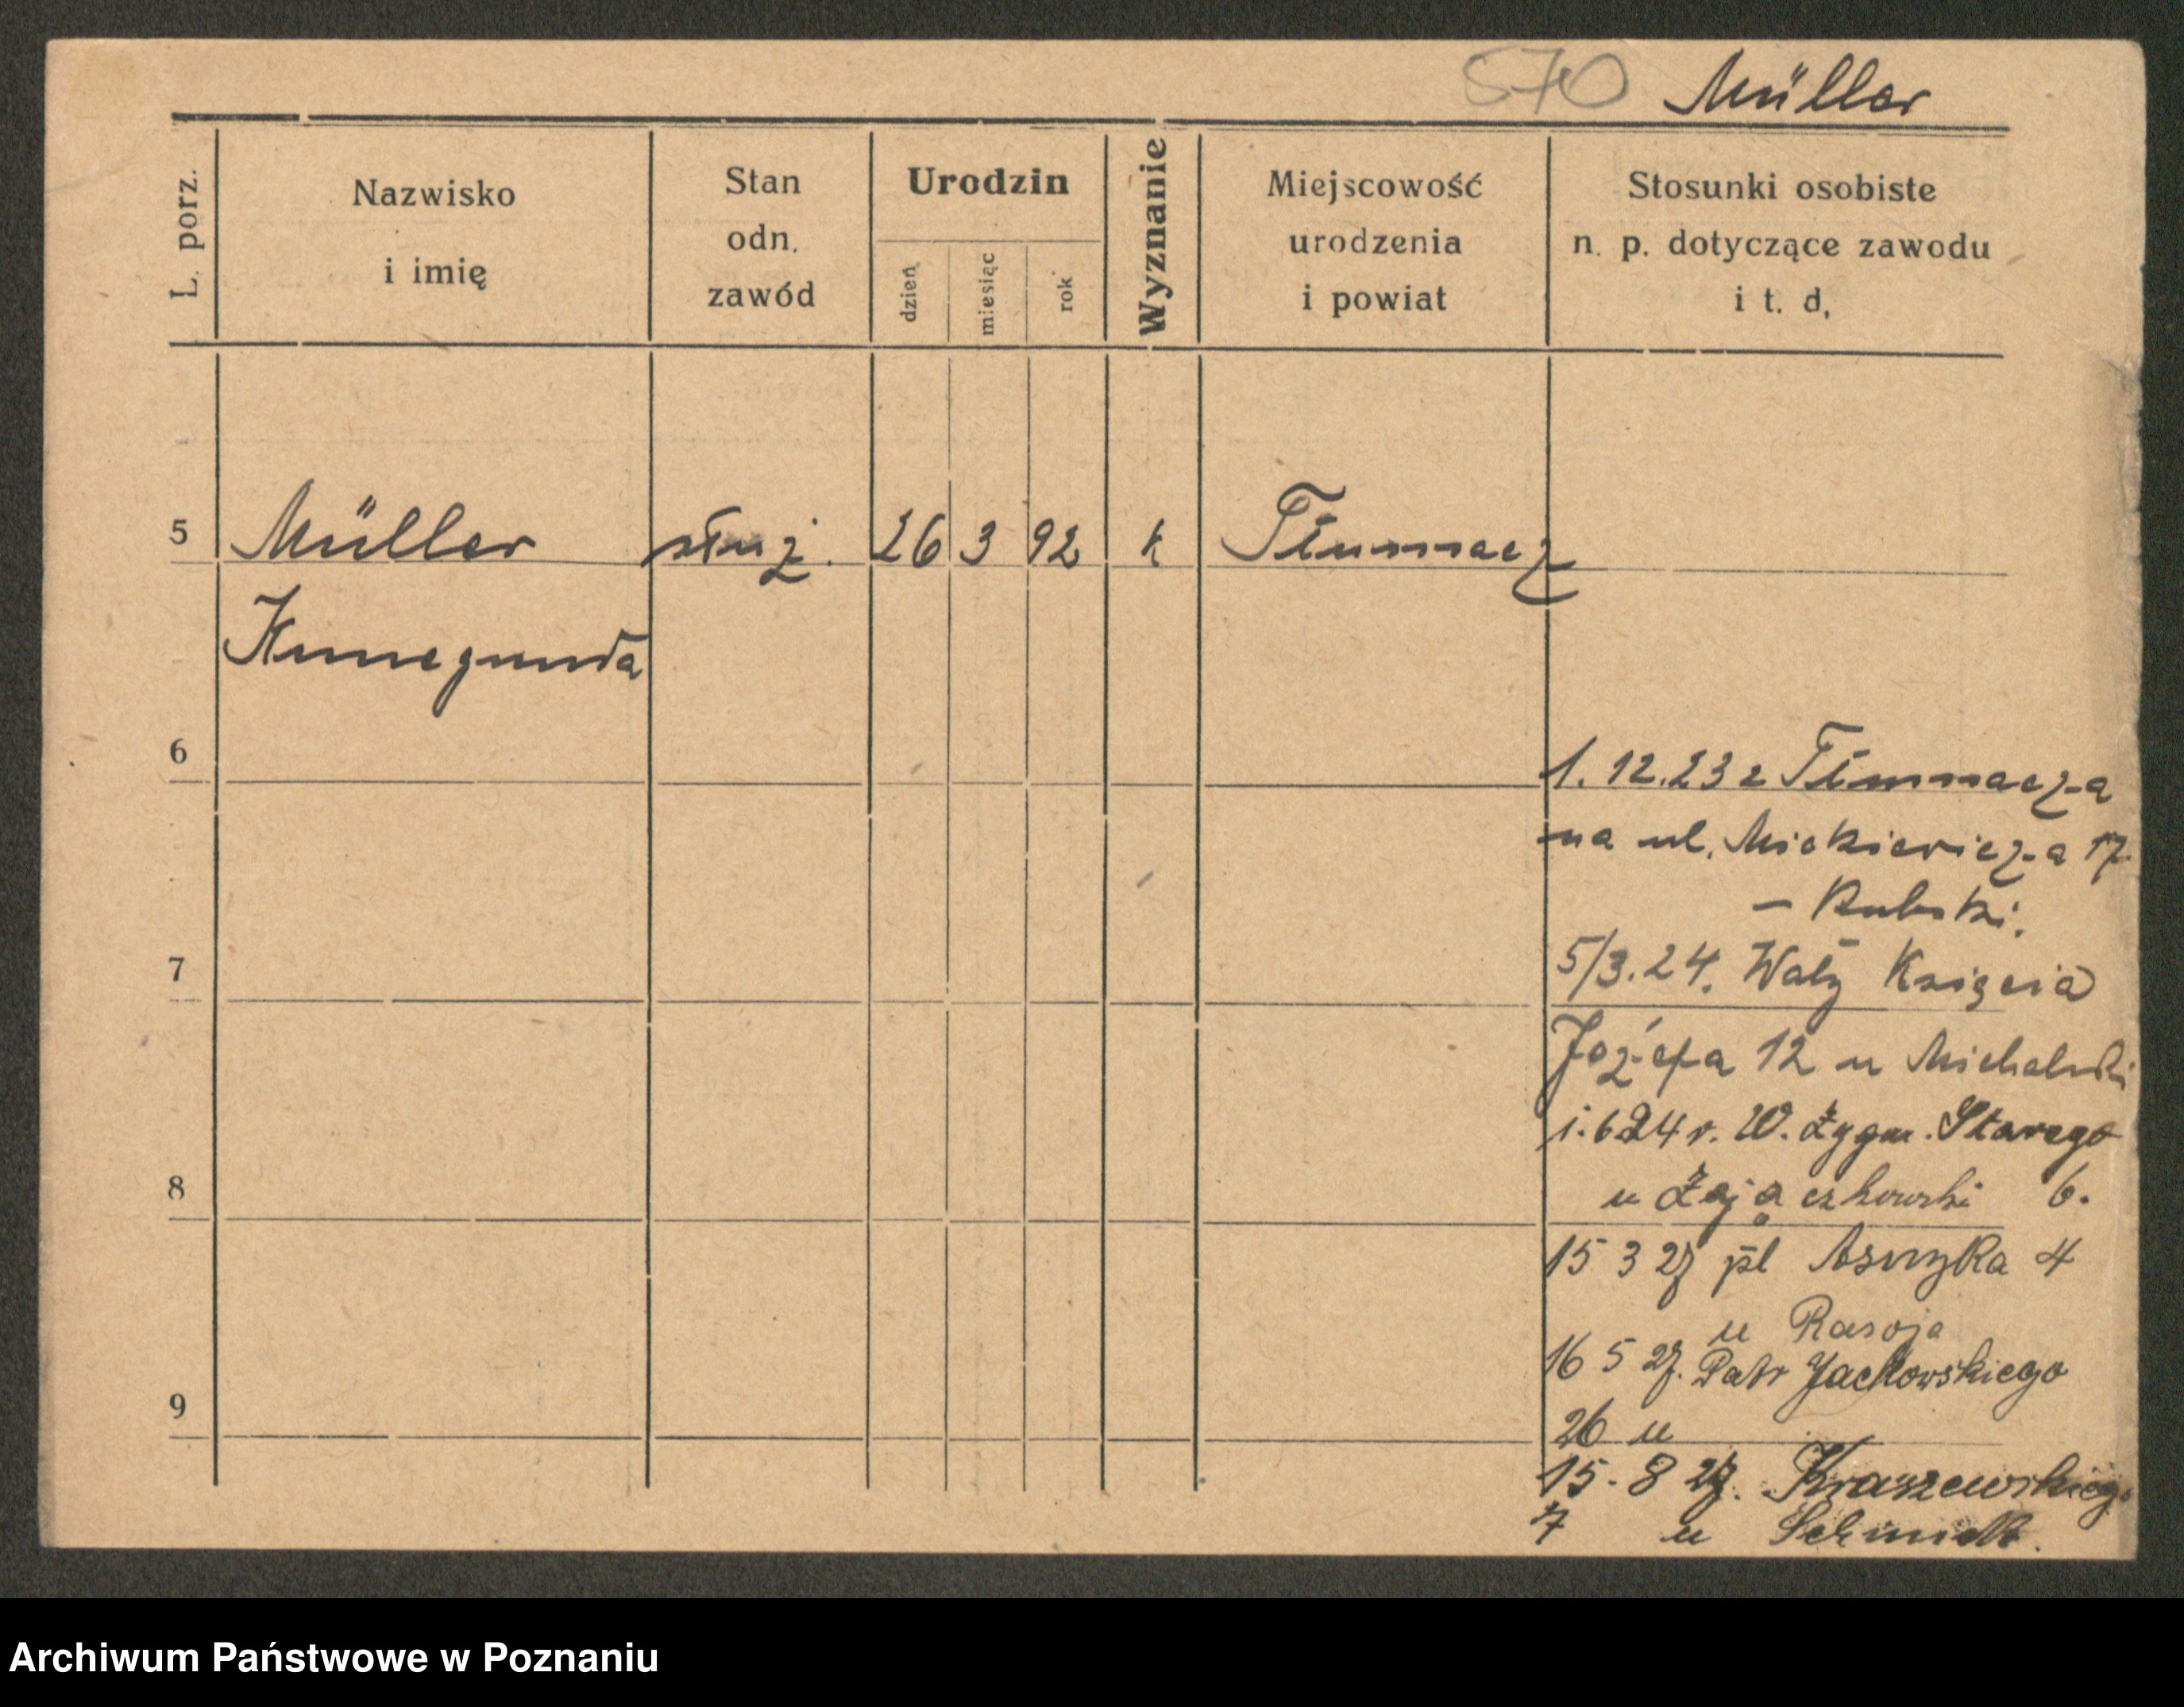 570 Müller
L. porz.
Nazwisko
i imię
Stan
odn.
zawód
Urodzin
dzień
miesiąc
rok
Wyznanie
Miejscowość
urodzenia
i powiat
Stosunki osobiste
n. p. dotyczące zawodu
i t. d,
5 Müller służ. 26 3 92 k Tłumacz
Kunegunda
6
1. 12. 23 z Tłumacza
na ul. Mickiewicza 17.
7
5/3. 24. Wały Księcia
Józefa 12 u Michalski
1. 6 24 r. W. Zygm. Starego
8
u Zajączkowski 6.
15 3 27 pl Asnyka 4
u
16 5 27. Patr Jackowskiego
9
26 u
15. 8 27. Kraszewskiego
7 u Schmidt.
Archiwum Państwowe w Poznaniu